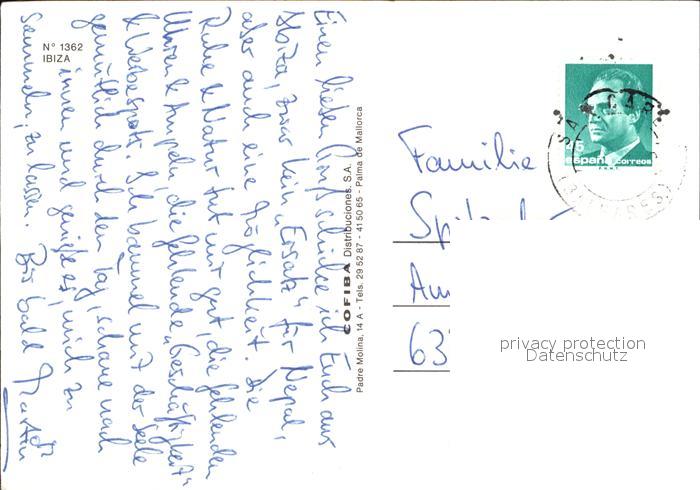 Nº 1362
IBIZA
Einen lieben Gruß schicke ich Euch aus
Ibiza, zwar kein "Ersatz" für Nepal,
aber auch eine Möglichkeit. Die
Ruhe & Natur tut mir gut, die fehlenden
Uhren & Ampeln, die fehlende "Geschäftigkeit"
& Werbespots. Ich bammel mit der Seele
gemütlich durch den Tag, schaue nach
innen und genieße es, mich zu
sammeln, zu lassen. Bis bald
Martin
COFIBA Distribuciones, S.A.
Padre Molina, 14 A - Tels. 29 52 87 - 41 50 65 - Palma de Mallorca
España correos
F.N.M.T.
(BALEARES)
Familie
Am
63
privacy protection
Datenschutz